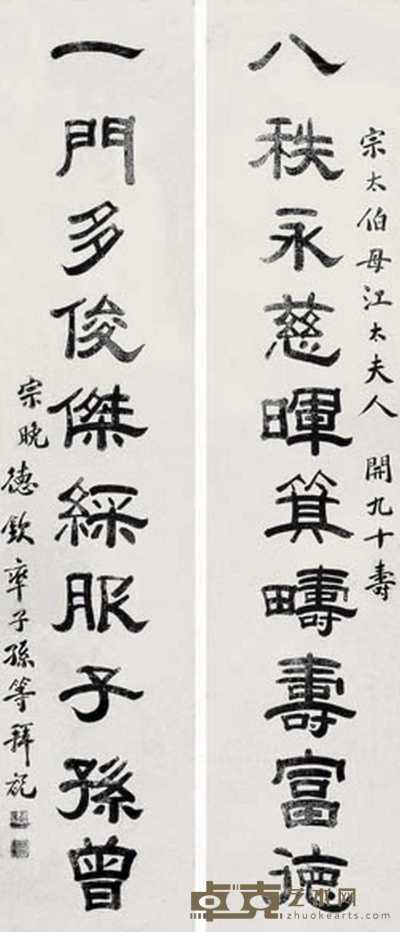 宗太伯母江太夫人 開九十壽
八秩永慈暉箕疇壽富德
一門多俊傑綵服子孫曾
宗晚德欽率子孫等拜祝
卓克艺术网
zhuokearts.com